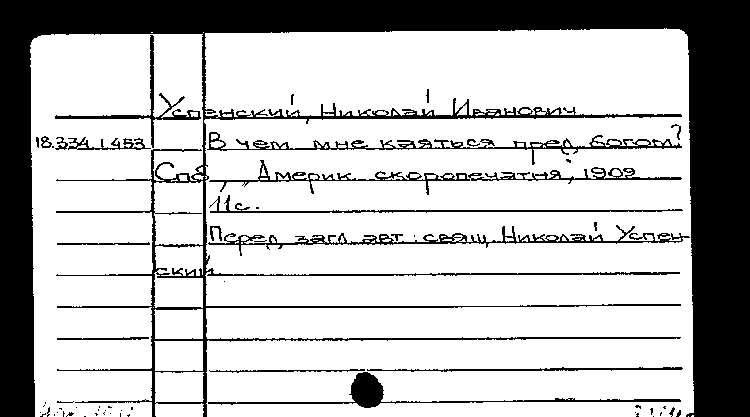 Успенский, Николай Иванович
18.334.1.453 В чем мне каяться пред богом?
Спб, „Америк. скоропечатня“, 1909
11с.
Перед загл. авт.: свящ. Николай Успен-
ский.